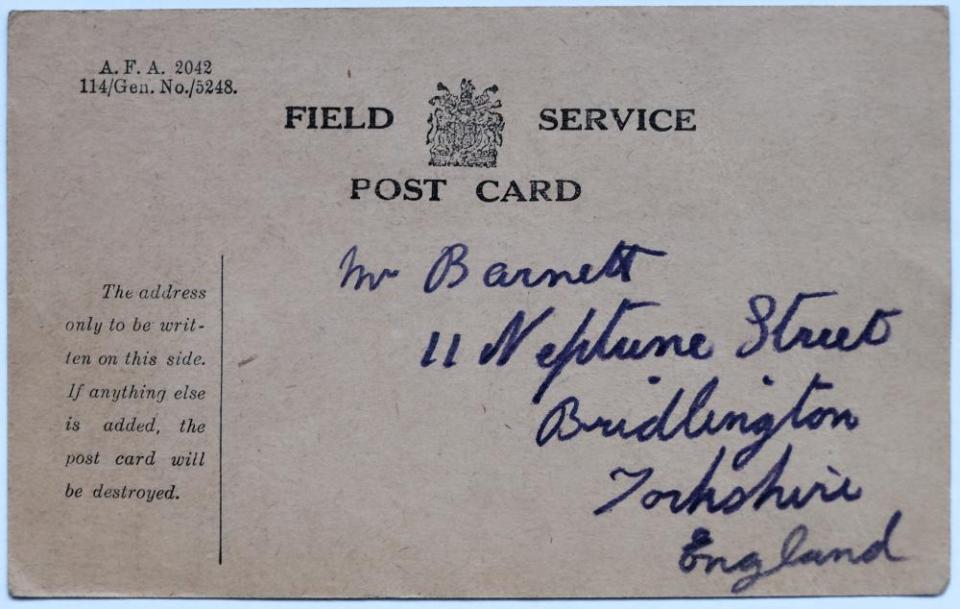 A. F. A. 2042
114/Gen. No./5248.
FIELD SERVICE
POST CARD
The address
only to be writ-
ten on this side.
If anything else
is added, the
post card will
be destroyed.
Mr Barnett
11 Neptune Street
Bridlington
Yorkshire
England